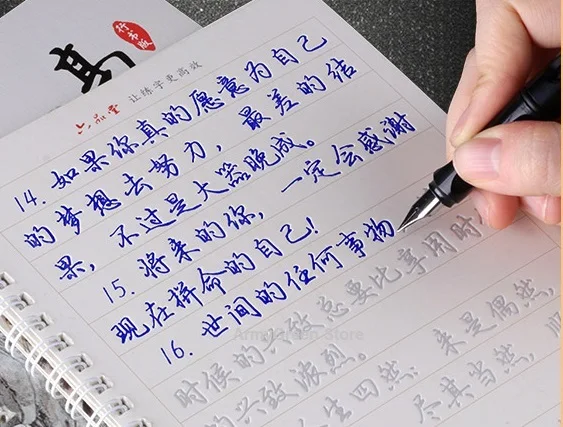 行书版
六品堂 让练字更高效
14. 如果你真的愿意为自己
的梦想去努力，最差的结
果，不过是大器晚成。
15. 将来的你，一定会感谢
现在拼命的自己！
16. 世间的任何事物
总要比享用时
时候的兴致
的兴致浓烈。来是偶然，
尽其当然，